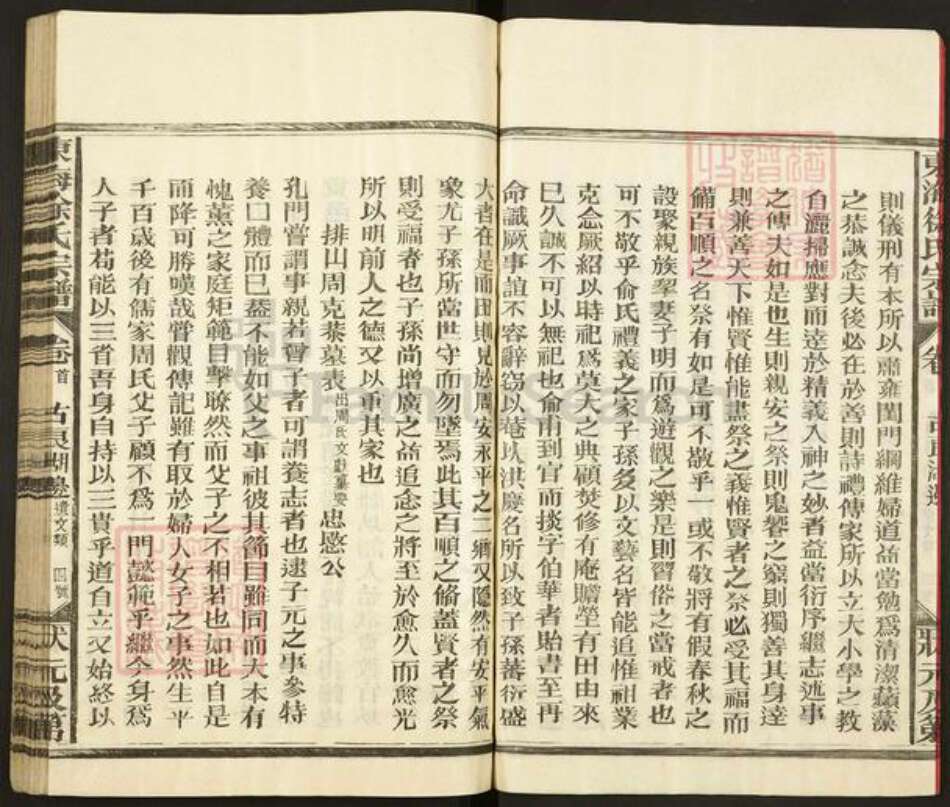 則儀刑有本所以肅雍閨門綱維婦道益當勉爲清潔蘋藻
之恭誠念夫後必在於善則詩禮傳家所以立大小學之教
自灑掃應對而達於精義入神之妙者益當衍序繼志述事
之傳夫如是也生則親安之祭則鬼饗之窮則獨善其身達
則兼善天下惟賢惟能盡祭之義惟賢者之祭必受其福而
備百順之名祭有如是可不敬乎一或不敬將有假春秋之
設聚親族挈妻子明而爲遊觀之樂是則習俗之當戒者也
可不敬乎俞氏禮義之家子孫多以文藝名皆能追惟祖業
克念厥紹以時祀爲莫大之典顧焚修有庵贍塋有田由來
已久誠不可以無祀也俞甫到官而掞字伯華者貽書至再
命識厥事誼不容辭竊以菴以洪慶名所以致子孫蕃衍盛
大者在是而田則見於周安永平之二鄉又隱然有安平氣
象尤子孫所當世守而勿墜焉此其百順之脩蓋賢者之祭
則受福者也子孫尚增廣之益追念之將至於愈久而愈光
所以明前人之德又以重其家也
排山周克棻墓表出周氏文獻彙要 忠愍公
孔門嘗謂事親若曾子者可謂養志者也逮子元之事參特
養口體而已蓋不能如父之事祖彼其節目雖同而大本有
愧薰之家庭矩範目擊瞭然而父子之不相若也如此自是
而降可勝嘆哉嘗觀傳記雖有取於婦人女子之事然生乎
千百歲後有儒家周氏父子顧不爲一門懿範乎繼今身爲
人子者苟能以三省吾身自持以三貴乎道自立又始終以
東海徐氏宗譜 卷首 古良湖邊 遺文類 四號 狀元及第